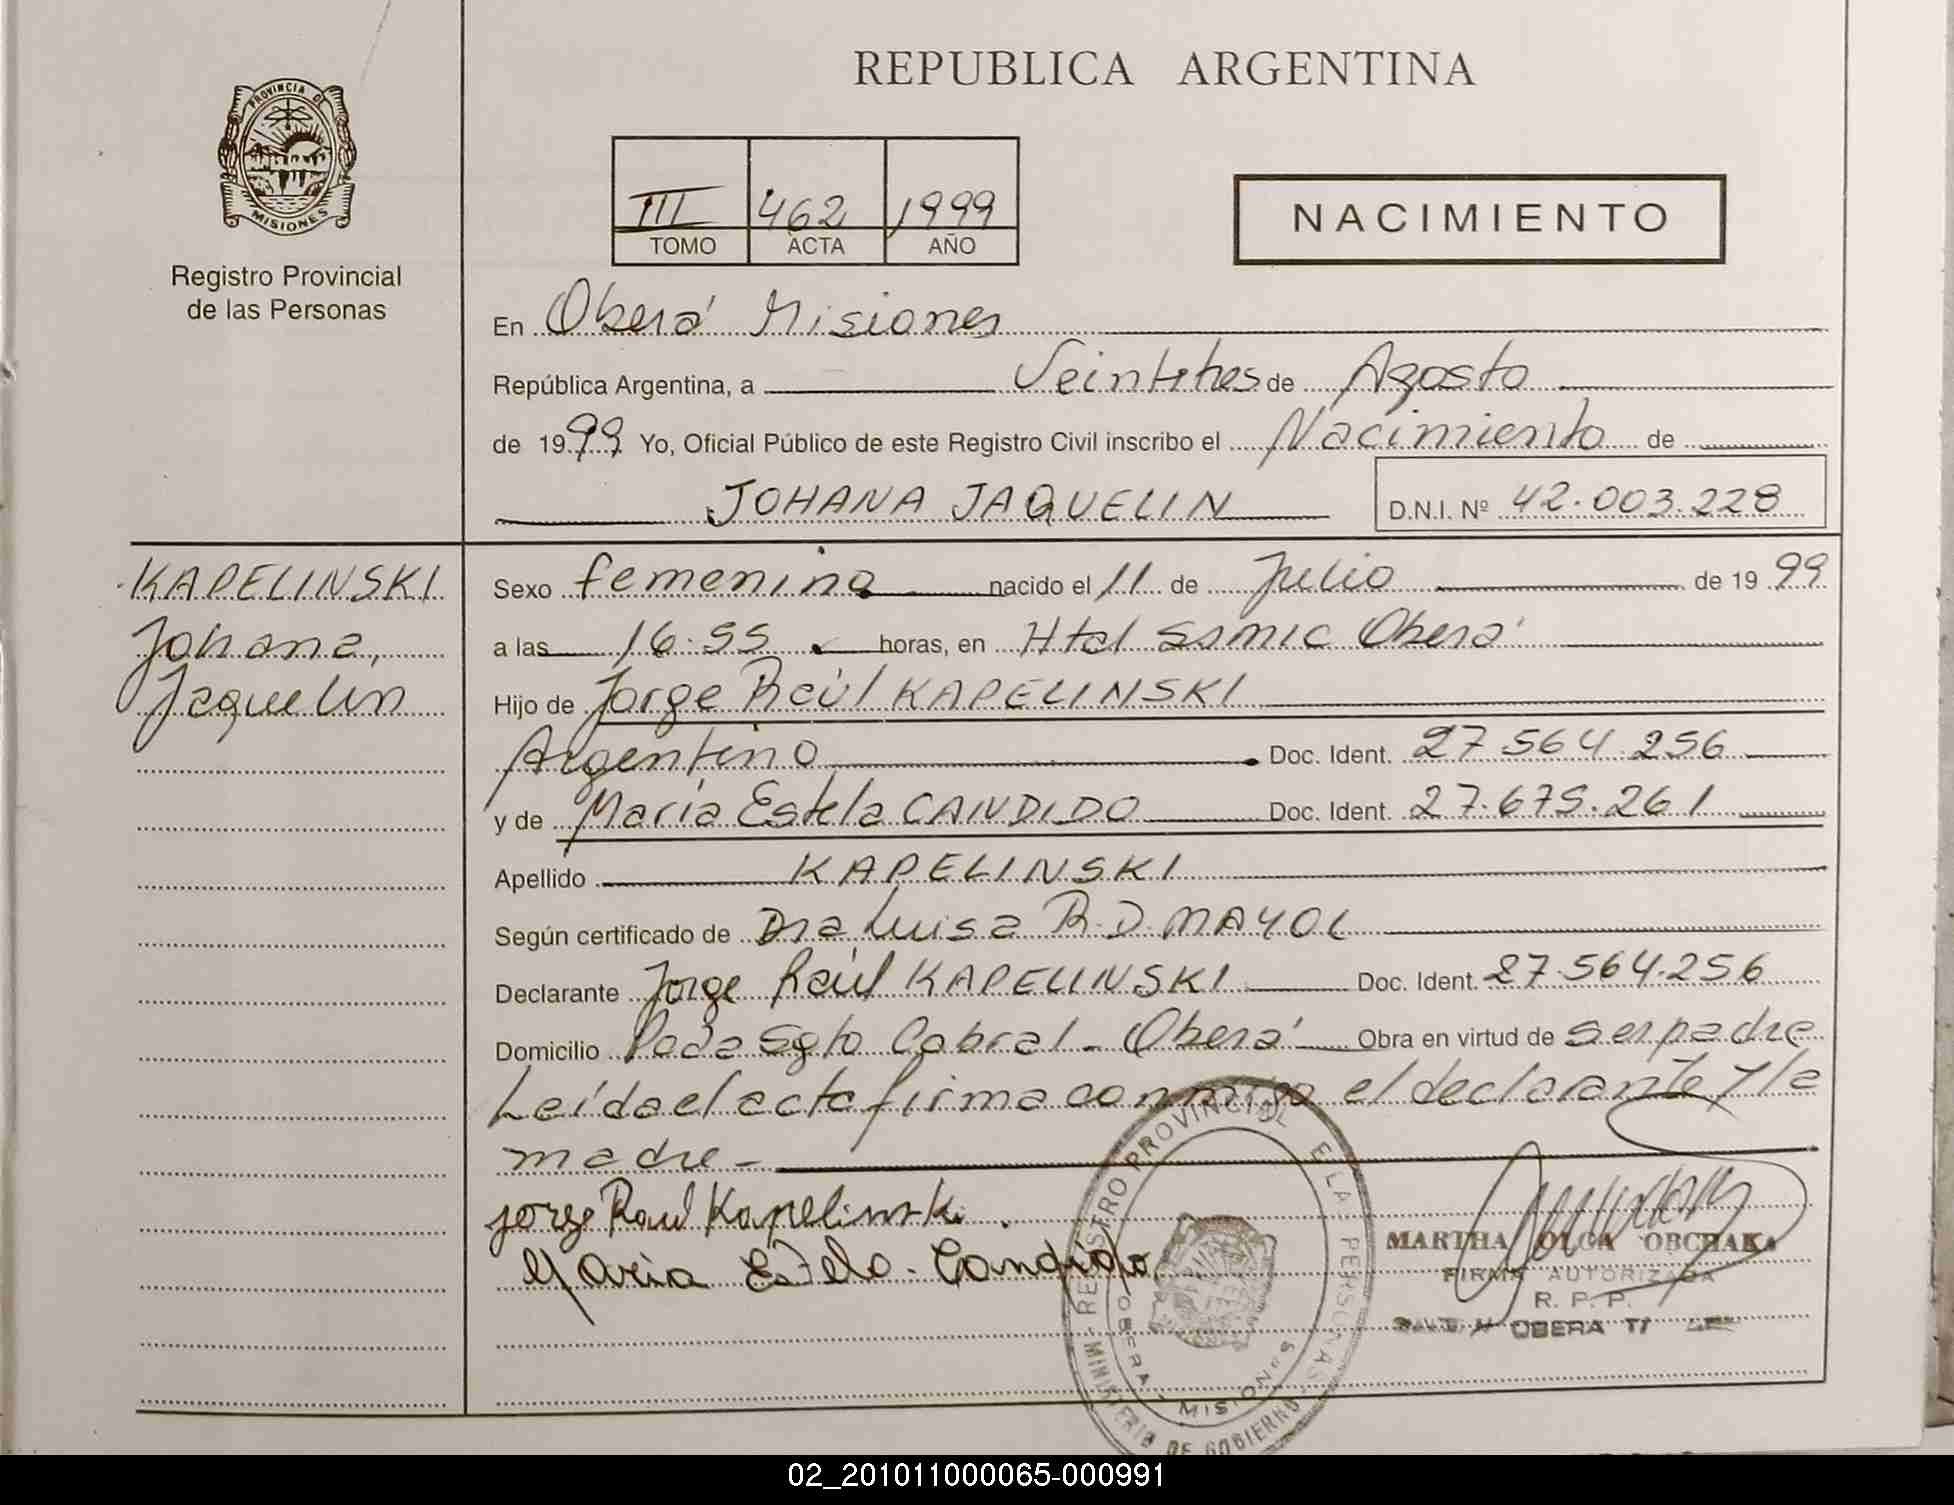 REPUBLICA ARGENTINA
PROVINCIA DE
MISIONES
Registro Provincial
de las Personas
III 462 1999
TOMO ACTA AÑO
NACIMIENTO
En Oberá Misiones
República Argentina, a Veintitres de Agosto
de 1999 Yo, Oficial Público de este Registro Civil inscribo el Nacimiento de
JOHANA JAQUELIN D.N.I. Nº 42.003.228
KAPELINSKI
Johana,
Jaquelin
Sexo femenino nacido el 11 de Julio de 1999
a las 16.55 horas, en Htal SSMIC Oberá
Hijo de Jorge Raúl KAPELINSKI
Argentino Doc. Ident. 27.564.256
y de María Estela CANDIDO Doc. Ident. 27.675.261
Apellido KAPELINSKI
Según certificado de Dra Luisa R.D. MAYOL
Declarante Jorge Raúl KAPELINSKI Doc. Ident. 27.564.256
Domicilio Pada Sgto Cabral - Oberá Obra en virtud de ser padre
Leída el acta firma conmigo el declarante y la
madre -
Jorge Raul Kapelinski.
Maria Estela Candido
REGISTRO PROVINCIAL E LA PERSONAS
MINISTERIO DE GOBIERNO
OBERA - MISIONES
MARTHA OLGA OBCHAKA
FIRMA AUTORIZADA
R. P. P.
OBERA
02_201011000065-000991